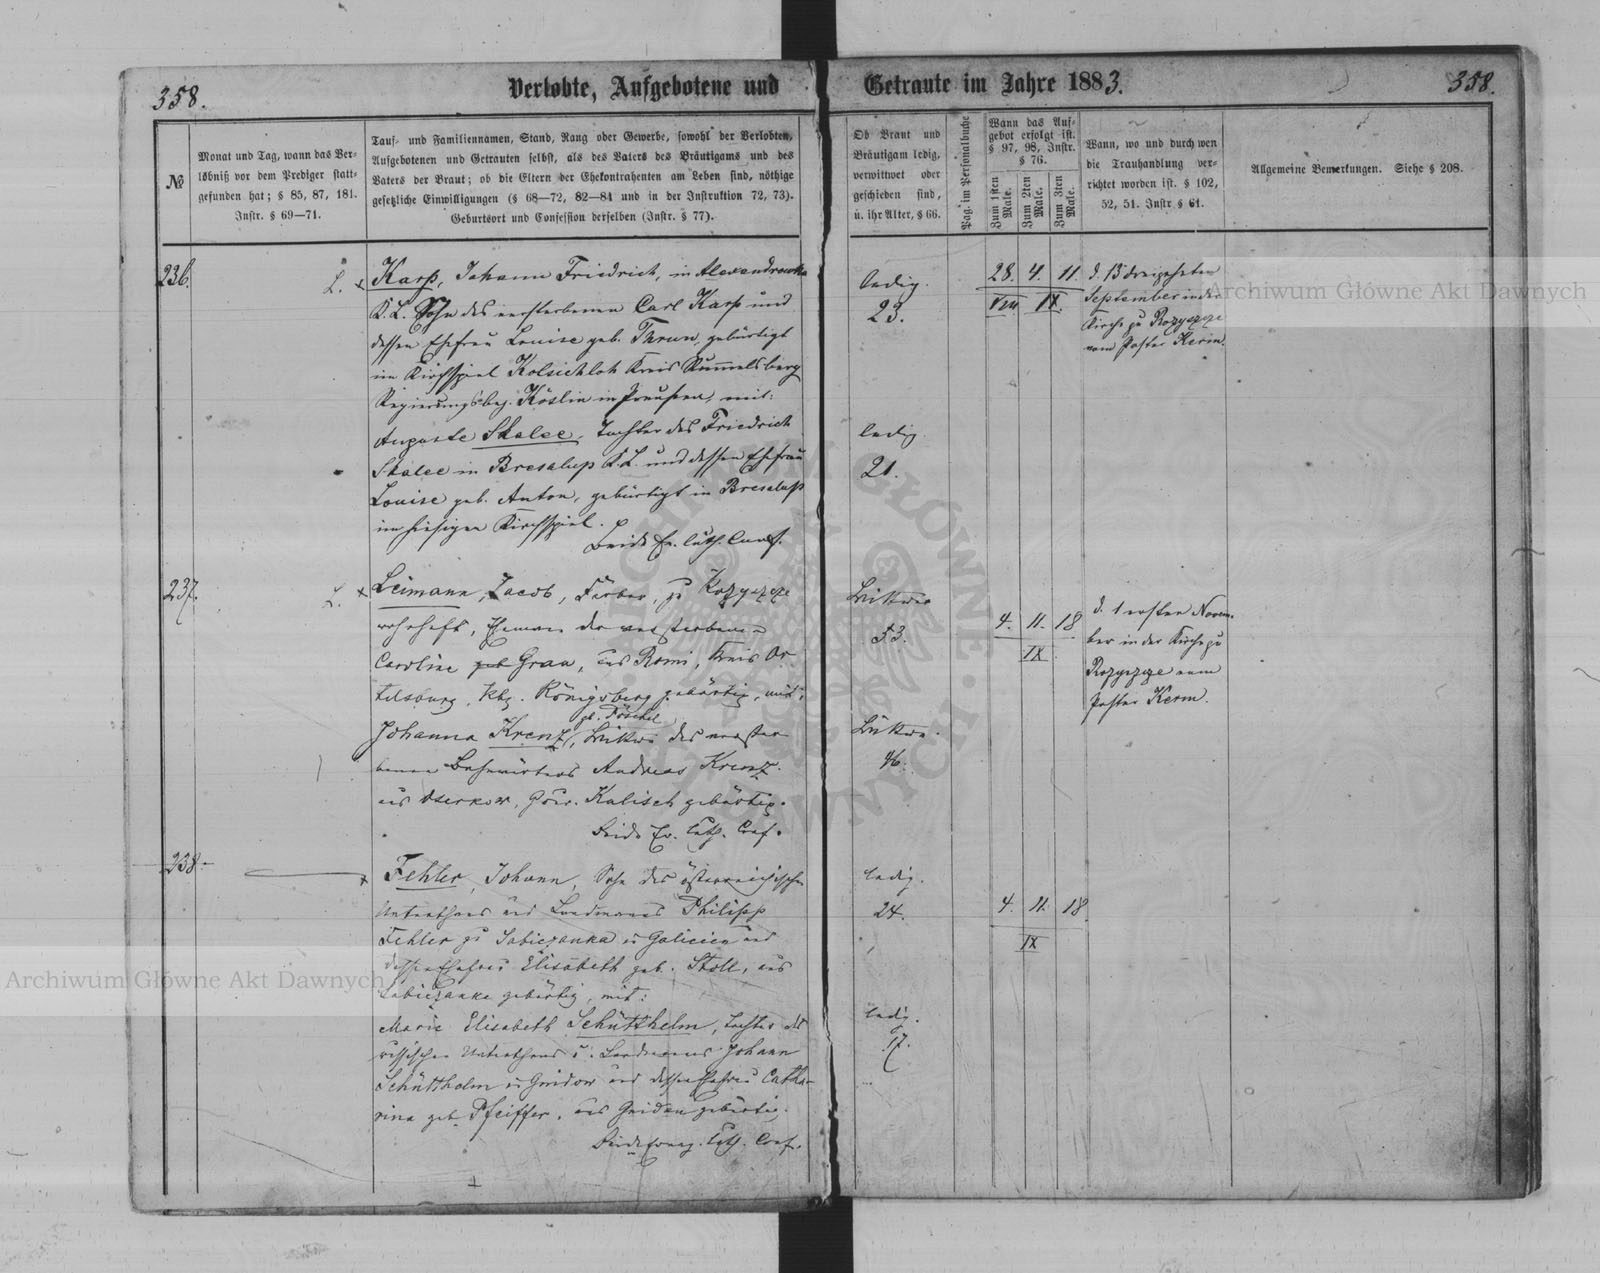 358.
Verlobte, Aufgebotene und
Getraute im Jahre 1883.
358.
№
Monat und Tag, wann das Ver-
löbniß vor dem Prediger statt-
gefunden hat; § 85, 87, 181.
Instr. § 69—71.
Tauf- und Familiennamen, Stand, Rang oder Gewerbe, sowohl der Verlobten,
Aufgebotenen und Getrauten selbst, als des Vaters des Bräutigams und des
Vaters der Braut; ob die Eltern der Ehekontrahenten am Leben sind, nöthige
gesetzliche Einwilligungen (§ 68—72, 82—84 und in der Instruktion 72, 73).
Geburtsort und Confession derselben (Instr. § 77).
Ob Braut und
Bräutigam ledig,
verwittwet oder
geschieden sind,
u. ihr Alter, § 66.
Pag. im Personalbuche.
Wann das Auf-
gebot erfolgt ist.
§ 97, 98, Instr.
§ 76.
Zum 1sten
Male.
Zum 2ten
Male.
Zum 3ten
Male.
Wann, wo und durch wen
die Trauhandlung ver-
richtet worden ist. § 102,
52, 51. Instr § 61.
Allgemeine Bemerkungen. Siehe § 208.
236.
L. x Karp, Johann Friedrich, in Alexandrowka
K. L. Sohn des verstorbenen Carl Karp und
dessen Ehefrau Louise geb. Thrun, gebürtigt
im Kirchspiel Kolsichloh Kreis Rummelsberg
Regierungsbez. Köslin in Preußen, mit:
Auguste Skalee, Tochter des Friedrich
Skalee in Bresalup K. L. und dessen Ehefrau
Louise geb. Anton, gebürtigt in Bresalup
im hiesigen Kirchspiel.
Beide Ev. luth. Conf.
ledig.
23.
ledig
21.
28. 4. 11.
VIII IX.
d. 13 dreizehnten
September in der
Kirche zu Rozyszcze
vom Pastor Kerm.
237.
L. x Leimann, Jacob, Färber, zu Rozyszcze
wohnhaft, Ehemann der verstorbenen
Caroline geb Grau, aus Romi, Kreis Or-
telsburg, Rbz. Königsberg gebürtig, mit:
gb. Pöschel
Johanna Krenz, Wittwe des verstor-
benen Bahnwärters Andreas Krenz.
aus Oserkow, Gouv. Kalisch gebürtig.
Beide Ev. Luth. Conf.
Wittwer
53.
Wittwe.
46.
4. 11. 18
IX
d. 1 ersten Novem-
ber in der Kirche zu
Rozyszcze vom
Pastor Kerm.
238.
x Fehler, Johann, Sohn des österreichischen
Unterthans und Landmanns Philipp
Fehler zu Sabiezanka in Galicien und
dessen Ehefrau Elisabeth geb. Stoll, aus
Sabiezanka gebürtig, mit:
Marie Elisabeth Schütthelm, Tochter des
russischen Unterthans u. Landmanns Johann
Schütthelm in Gnidow und dessen Ehefrau Catha-
rina geb. Pfeiffer, aus Gnidau gebürtig.
Beide evang. Luth. Conf.
ledig.
24.
ledig.
17.
4. 11. 18.
IX
Archiwum Główne Akt Dawnych
Archiwum Główne Akt Dawnych